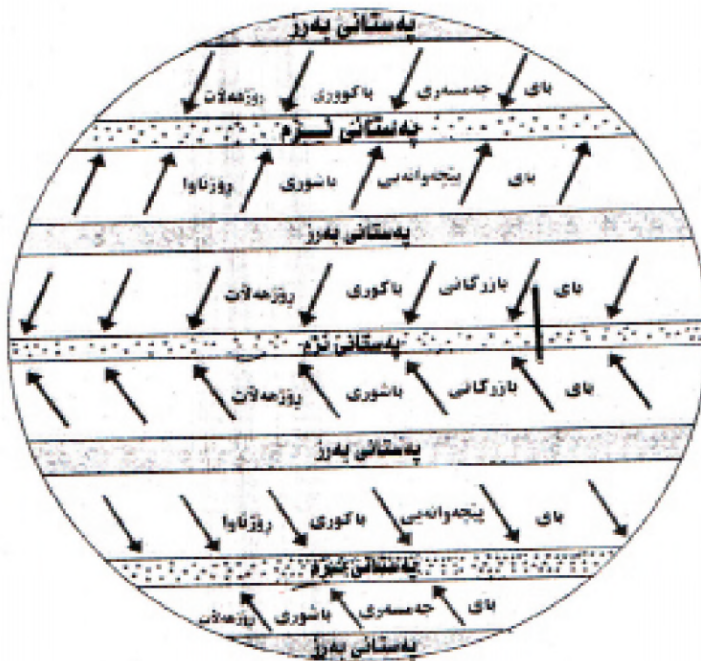 پەستانی بەرز
بای جەمسەری باکووری رۆژهەڵات
پەستانی نزم
بای پێچەوانەیی باشوری رۆژئاوا
پەستانی بەرز
بای بازرگانی باکوری رۆژهەڵات
پەستانی نزم
بای بازرگانی باشوری رۆژهەڵات
پەستانی بەرز
بای پێچەوانەیی باکوری رۆژئاوا
پەستانی نزم
بای جەمسەری باشوری رۆژهەڵات
پەستانی بەرز